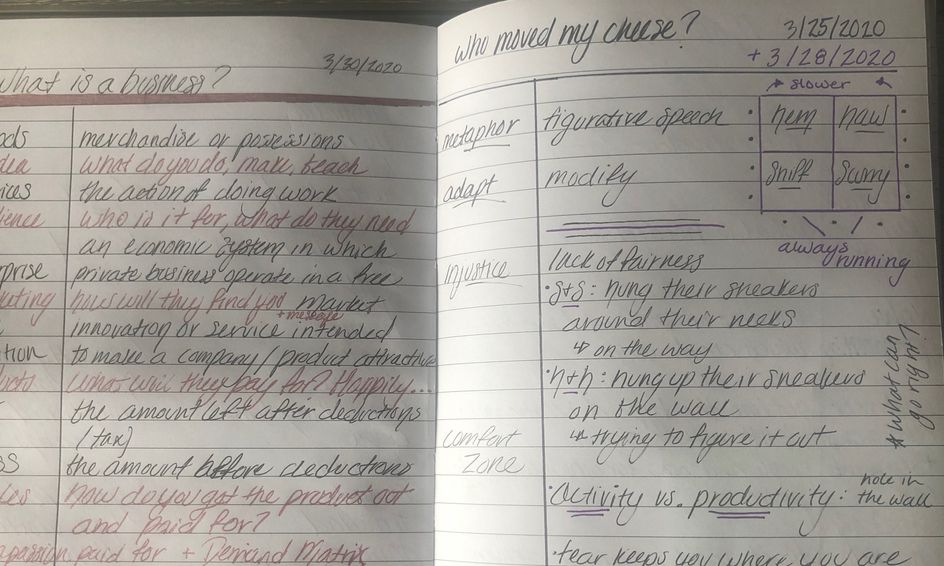 What is a business?
3/30/2020
merchandise or possessions
what do you do, make, teach
the action of doing work
who is it for, what do they need
an economic system in which
private business operate in a free
market
how will they find you
+ message
innovation or service intended
to make a company/product attractive
what will they pay for? Happily...
the amount left after deductions
(tax)
the amount before deductions
how do you get the product out
and paid for?
paid for + Demand Matrix
who moved my cheese?
3/25/2020
+ 3/28/2020
metaphor
figurative speech
slower
hem
haw
sniff
scurry
always
running
adapt
modify
injustice
lack of fairness
• s+s: hung their sneakers
around their necks
↳ on the way
• h+h: hung up their sneakers
on the wall
↳ trying to figure it out
comfort
zone
• activity vs. productivity: hole in
the wall
• fear keeps you where you are
* what can
go right?